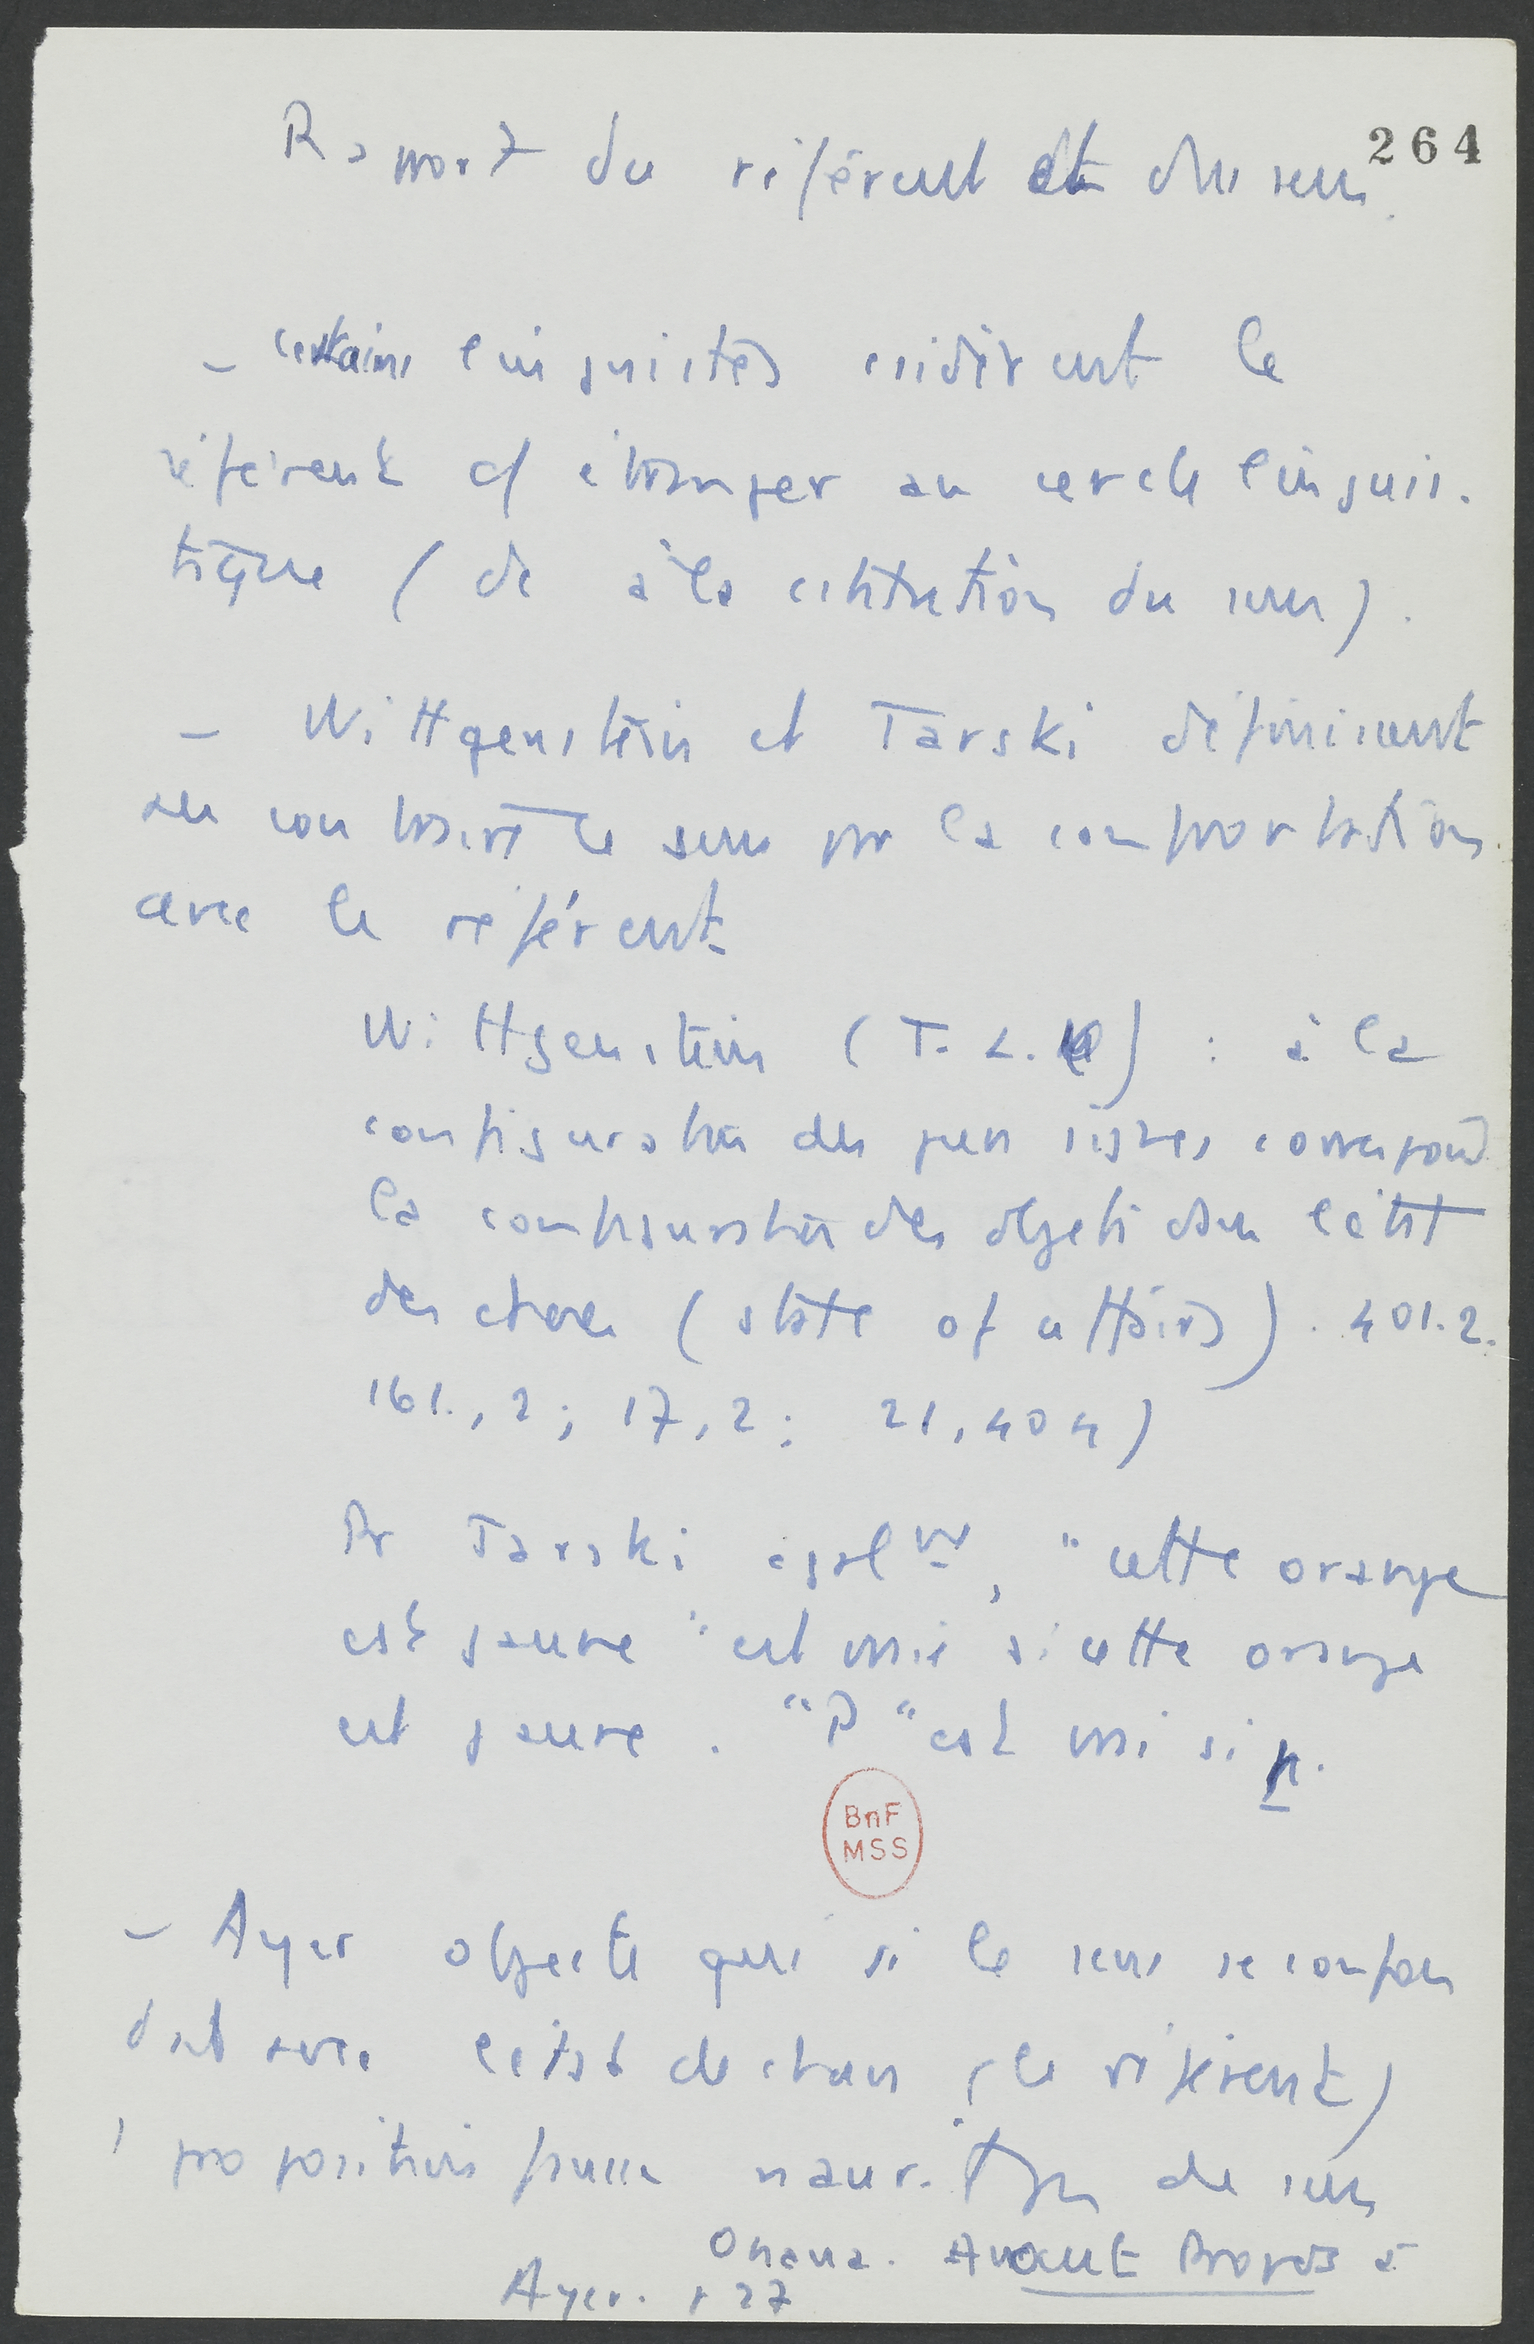 264
Rapport du référent et du sens.
– certains linguistes csidèrent le
référent c/ étranger au cercle linguis-
tique (dc à la cstitution du sens).
– Wittgenstein et Tarski définissent
au contraire le sens par la comportation
avec le référent
Wittgenstein (T. L.) : à la
configuration des signes correspond
la configuration des objets dans l'état
des choses (state of affairs). 401.2.
161., 2; 17, 2; 21, 404)
Pr Tarski égalt, "cette orange
est jaune" est vraie si cette orange
est jaune. "P" est vrai si p.
BnF
MSS
– Ayer objecte que si le sens se confon
dait avec l'état de choses (le référent)
1 proposition fausse n'aur. pas de sens
Onana. Avant Propos à
Ayer. p 27